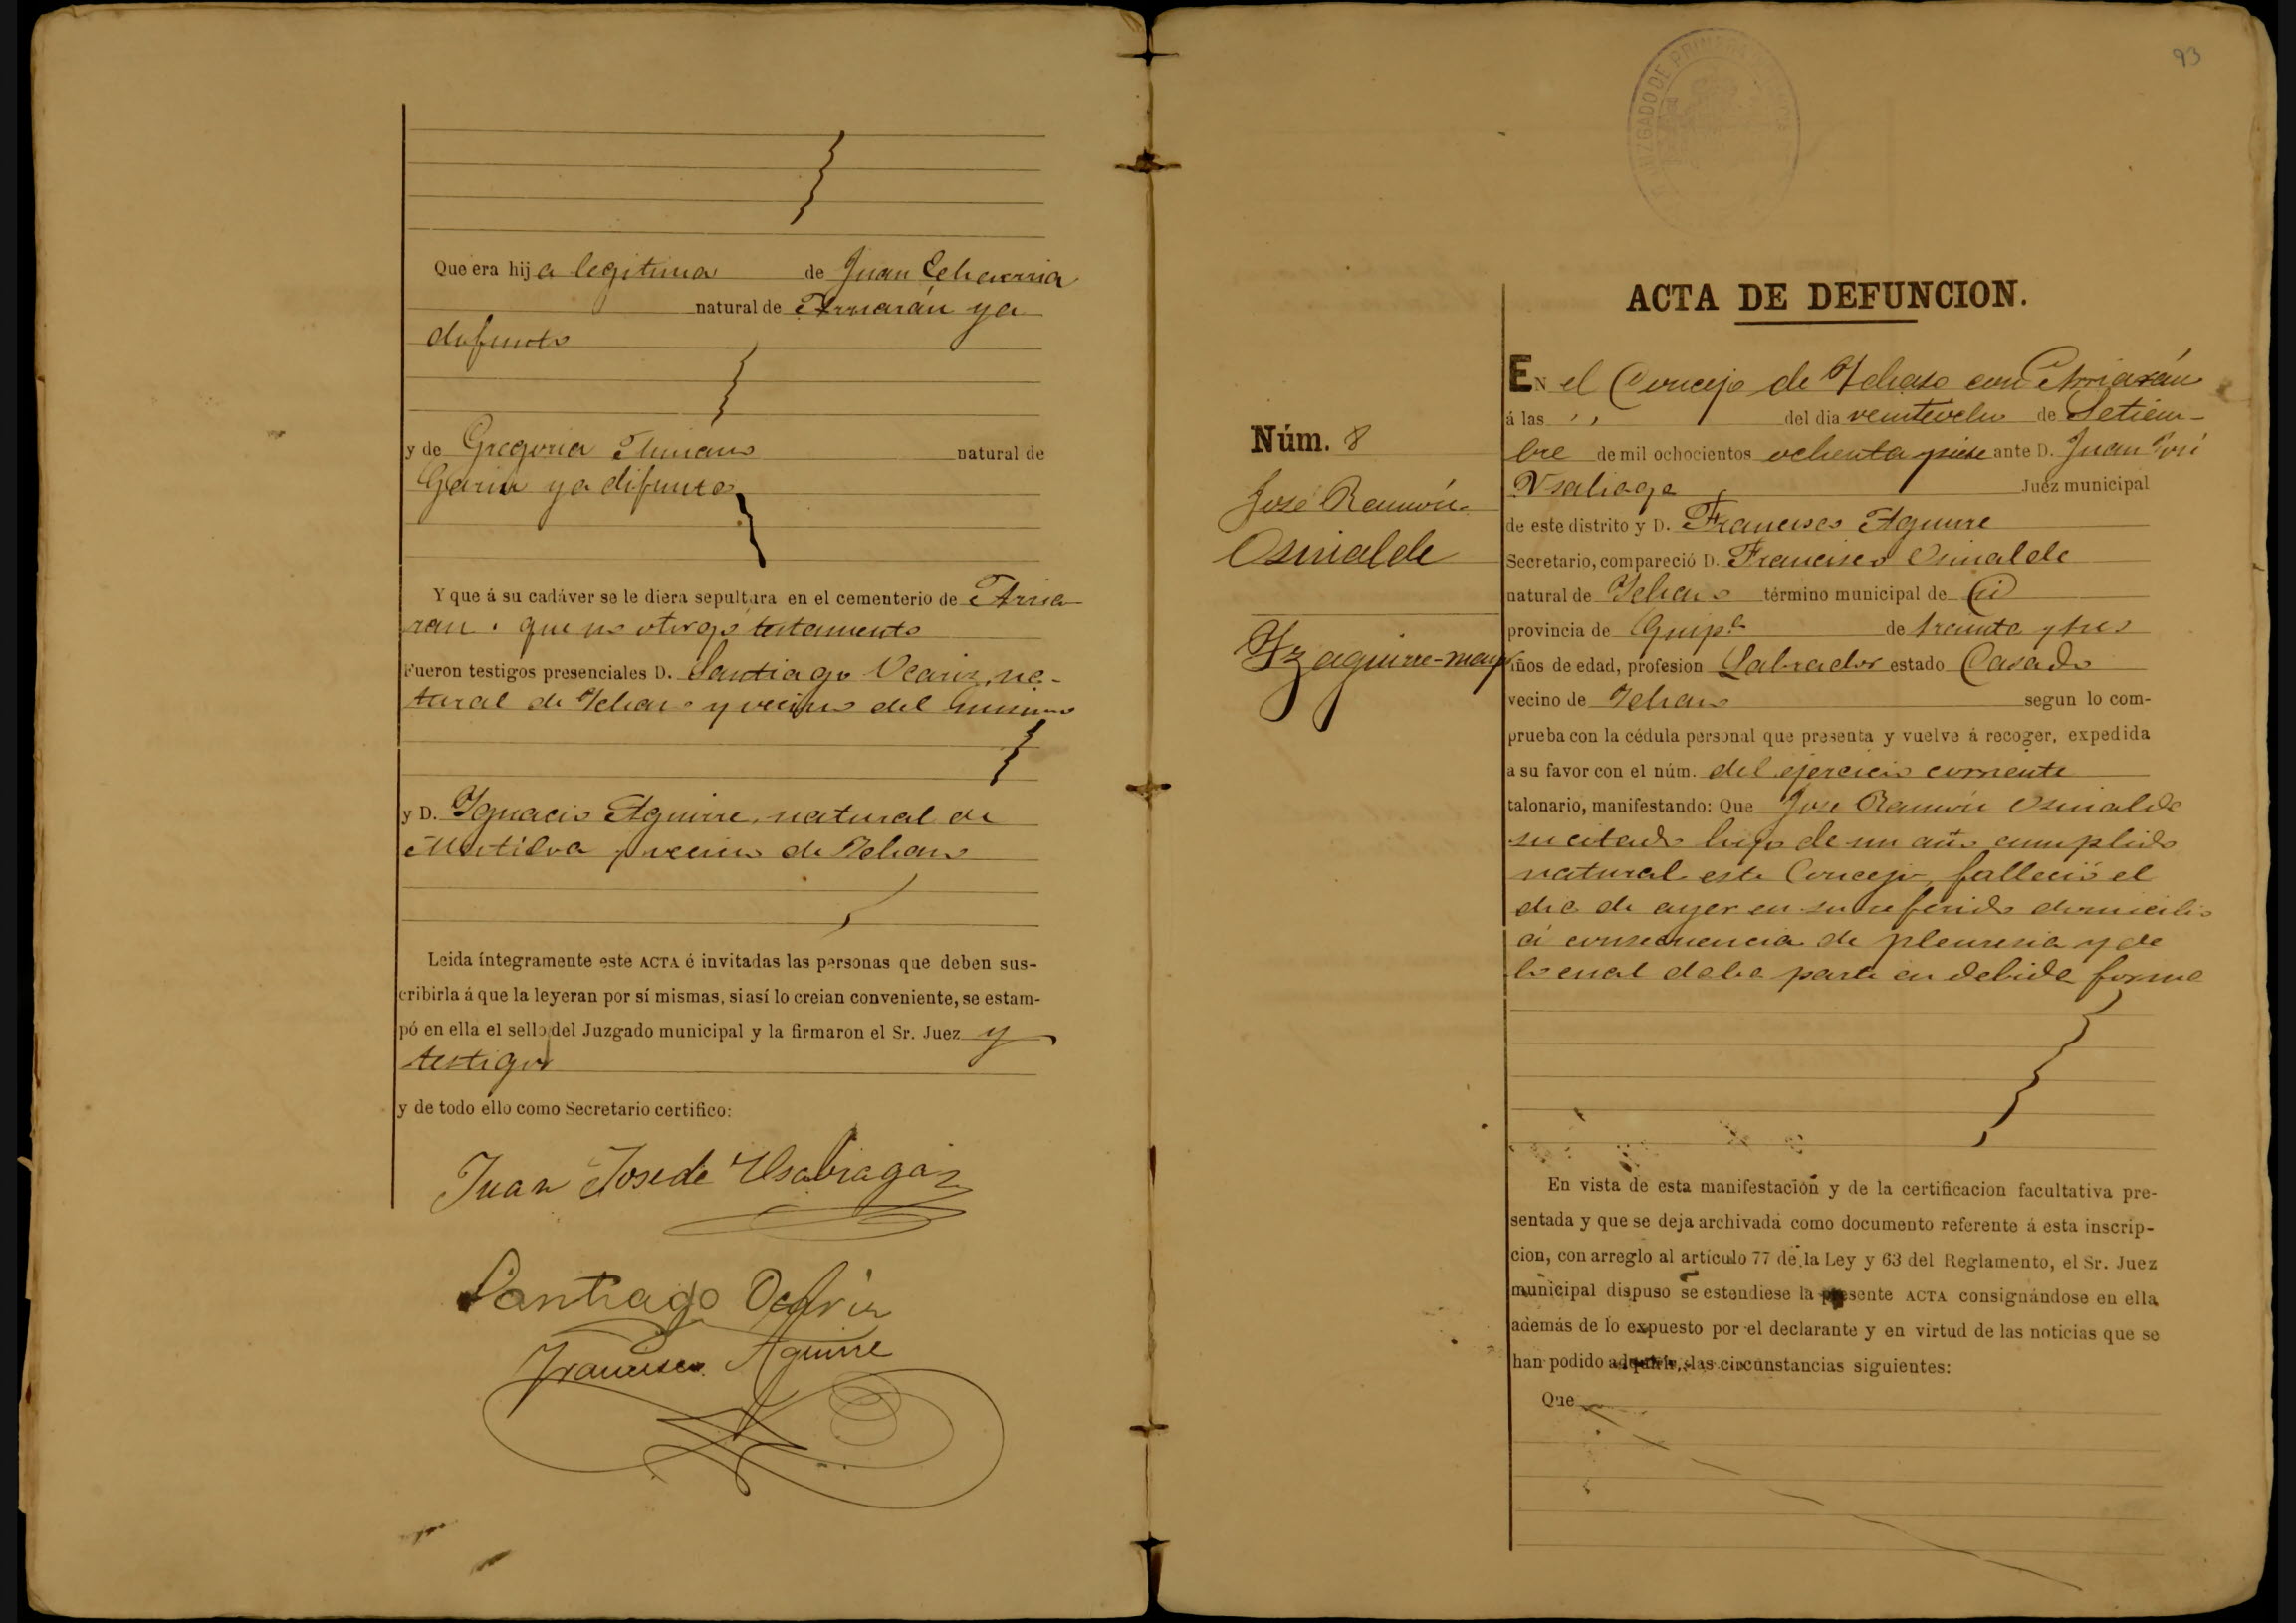 Que era hija legitima de Juan Echeverria
natural de Arriarán ya
difunto
y de Gregoria natural de
Garin ya difunta
Y que á su cadáver se le diera sepultura en el cementerio de Arria-
ran. que no otorgó testamento
Fueron testigos presenciales D. Santiago Ocariz, na-
tural de Ichaso y vecino del mismo
y D. Ignacio Aguirre, natural de
Mutiloa y vecino de Ichaso
Leida íntegramente este ACTA é invitadas las personas que deben sus-
cribirla á que la leyeran por sí mismas, si así lo creian conveniente, se estam-
pó en ella el sello del Juzgado municipal y la firmaron el Sr. Juez y
testigos
y de todo ello como Secretario certifico:
Juan José de Usabiaga
Santiago Ocariz
Francisco Aguirre
93
JUZGADO DE PRIMERA
ACTA DE DEFUNCION.
Núm. 8
José Ramón
Osinalde
Yzaguirre-
EN el Concejo de Ichaso con Arriarán
á las ,, del dia veinteocho de Setiem-
bre de mil ochocientos ochenta y siete ante D. Juan José
Usabiaga Juez municipal
de este distrito y D. Francisco Aguirre
Secretario, compareció D. Francisco Osinalde
natural de Ichaso término municipal de id
provincia de Guip.a de treinta y tres
años de edad, profesion Labrador estado Casado
vecino de Ichaso segun lo com-
prueba con la cédula personal que presenta y vuelve á recoger, expedida
a su favor con el núm. del ejercicio corriente
talonario, manifestando: Que José Ramón Osinalde
su citado hijo de un año cumplido
natural este Concejo, falleció el
dia de ayer en su referido domicilio
á consecuencia de pleuresia y de
lo cual daba parte en debida forma
En vista de esta manifestación y de la certificacion facultativa pre-
sentada y que se deja archivada como documento referente á esta inscrip-
cion, con arreglo al artículo 77 de la Ley y 63 del Reglamento, el Sr. Juez
municipal dispuso se estendiese la presente ACTA consignándose en ella
además de lo expuesto por el declarante y en virtud de las noticias que se
han podido adquirir, las circunstancias siguientes:
Que